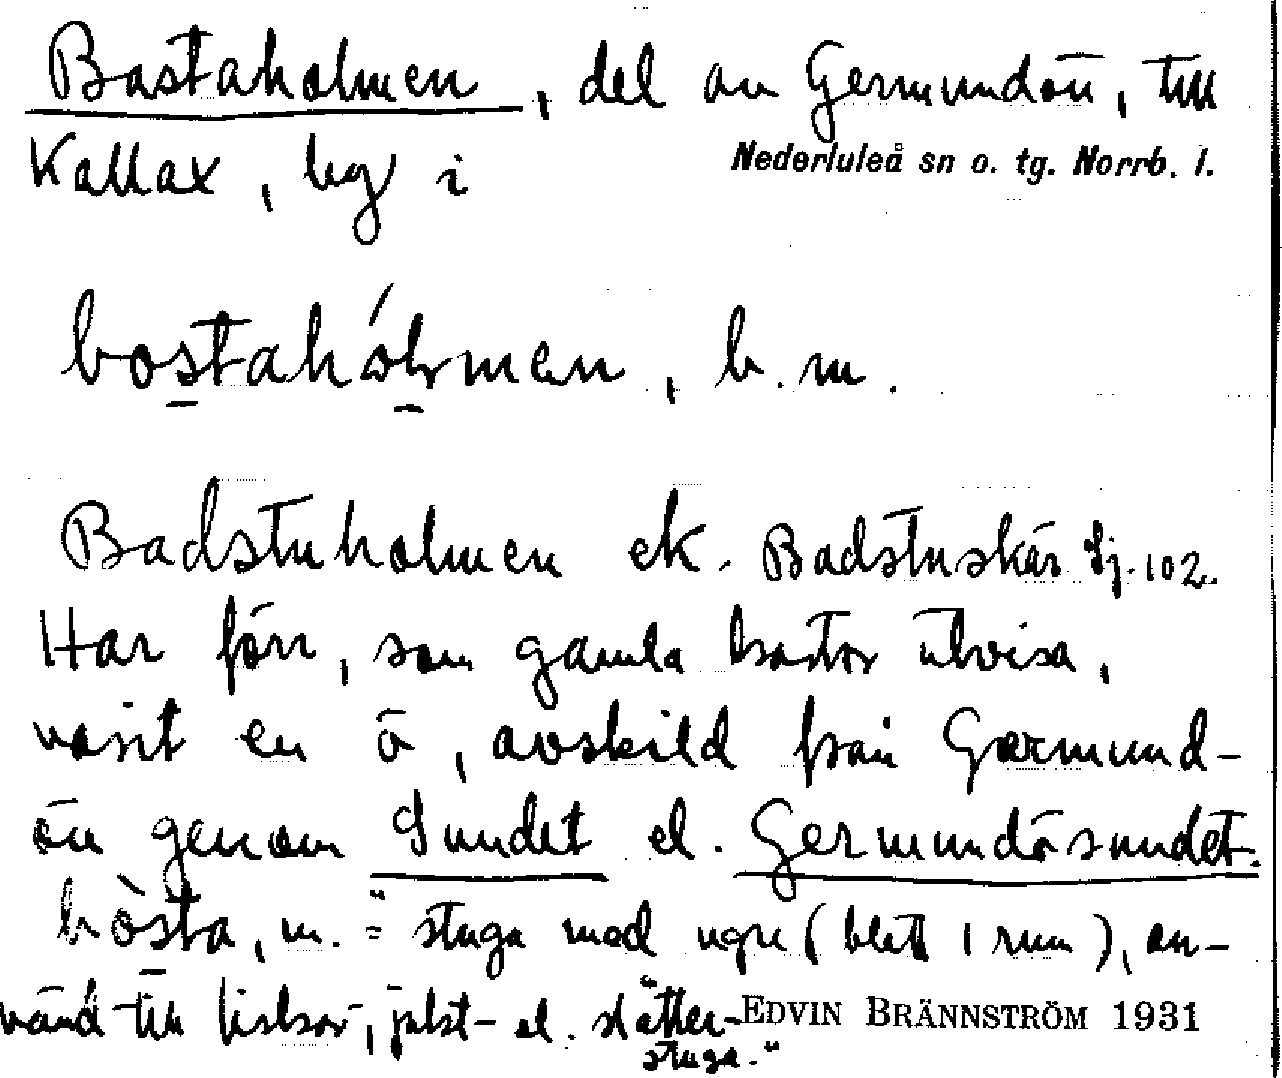 Bastaholmen, del av Germundön, till
Kallax, by i Nederluleå sn o. tg. Norrb. l.
bostahólmen, b. m.
Badstuholmen ek. Badstuskär Sj. 102.
Har förr, som gamla kartor utvisa,
varit en ö, avskild från Germund-
ön genom Sundet el. Germundösundet.
bòsta, m. = "stuga med ugn (blott 1 rum), an-
vänd till fiskar-, julst- el. slåtter-
stuga."
EDVIN BRÄNNSTRÖM 1931